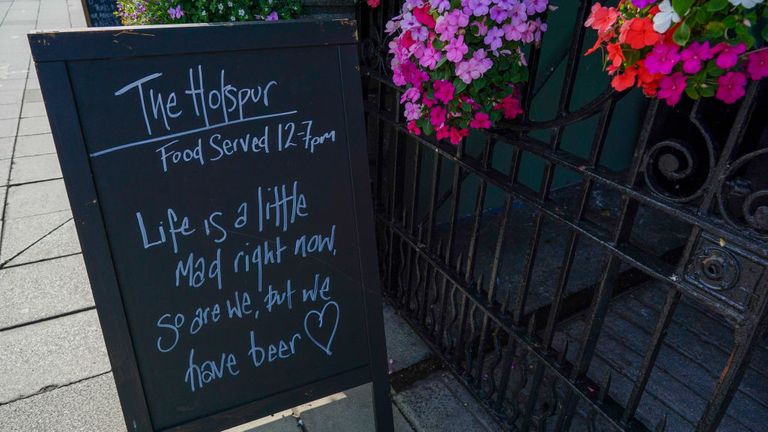 The Hotspur
Food Served 12-7pm
Life is a little
Mad right now,
so are we, but we
have beer